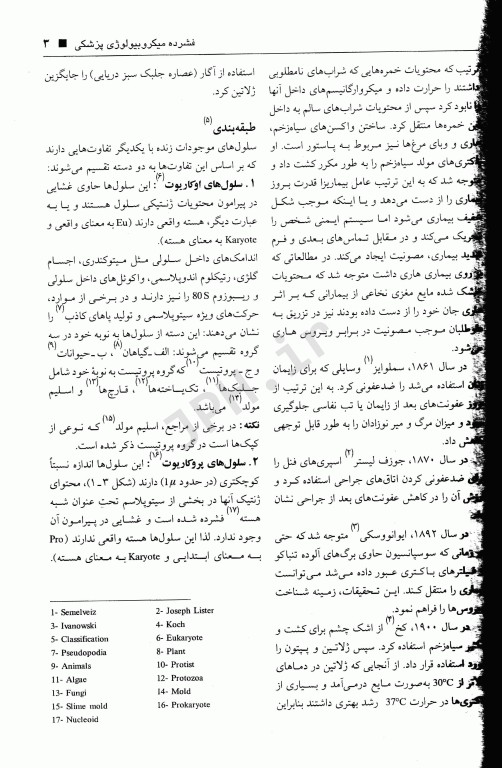 فشرده میکروبیولوژی پزشکی ■ ۳
ترتیب که محتویات خمره‌هایی که شراب‌های نامطلوبی
داشتند را حرارت داده و میکروارگانیسم‌های داخل آنها
نابود کرد سپس از محتویات شراب‌های سالم به داخل
خمره‌ها منتقل کرد. ساختن واکسن‌های سیاه‌زخم،
و وبای مرغ‌ها نیز مربوط به پاستور است. او
باکتری‌های مولد سیاه‌زخم را به طور مکرر کشت داد و
متوجه شد که به این ترتیب عامل بیماریزا قدرت بروز
بیماری را از دست می‌دهد و یا اینکه موجب شکل
خفیف بیماری می‌شود اما سیستم ایمنی شخص را
تحریک می‌کند و در مقابل تماس‌های بعدی و فرم
شدید بیماری، مصونیت ایجاد می‌کند. در مطالعاتی که
روی بیماری هاری داشت متوجه شد که محتویات
خشک شده مایع مغزی نخاعی از بیمارانی که بر اثر
هاری جان خود را از دست داده بودند نیز در تزریق به
داوطلبان موجب مصونیت در برابر ویروس هاری
می‌شود.
در سال ۱۸۶۱، سملوایز(۱) وسایلی که برای زایمان
استفاده می‌شد را ضدعفونی کرد. به این ترتیب از
بروز عفونت‌های بعد از زایمان یا تب نفاسی جلوگیری
و میزان مرگ و میر نوزادان را به طور قابل توجهی
کاهش داد.
در سال ۱۸۷۰، جوزف لیستر(۲) اسپری‌های فنل را
ضدعفونی کردن اتاق‌های جراحی استفاده کرد و
آن را در کاهش عفونت‌های بعد از جراحی نشان
در سال ۱۸۹۲، ایوانووسکی(۳) متوجه شد که حتی
زمانی که سوسپانسیون حاوی برگ‌های آلوده تنباکو
فیلترهای باکتری عبور داده می‌شد می‌توانست
را منتقل کند. این تحقیقات، زمینه شناخت
ویروس‌ها را فراهم نمود.
در سال ۱۹۰۰، کخ(۴) از اشک چشم برای کشت و
سیاه‌زخم استفاده کرد. سپس ژلاتین و پپتون را
مورد استفاده قرار داد. از آنجایی که ژلاتین در دماهای
از 30°C به‌صورت مایع درمی‌آمد و بسیاری از
باکتری‌ها در حرارت 37°C رشد بهتری داشتند بنابراین
استفاده از آگار (عصاره جلبک سبز دریایی) را جایگزین
ژلاتین کرد.
طبقه‌بندی(۵)
سلول‌های موجودات زنده با یکدیگر تفاوت‌هایی دارند
که بر اساس این تفاوت‌ها به دو دسته تقسیم می‌شوند:
۱. سلول‌های اوکاریوت(۶): این سلول‌ها حاوی غشایی
در پیرامون محتویات ژنتیکی سلول هستند و یا به
عبارت دیگر، هسته واقعی دارند (Eu به معنای واقعی و
Karyote به معنای هسته).
اندامک‌های داخل سلولی مثل میتوکندری، اجسام
گلژی، رتیکولم اندوپلاسمی، واکوئل‌های داخل سلولی
و ریبوزوم 80S را نیز دارند و در برخی از موارد،
حرکت‌های ویژه سیتوپلاسمی و تولید پاهای کاذب(۷) را
نشان می‌دهند: این دسته از سلول‌ها به نوبه خود در سه
گروه تقسیم می‌شوند: الف ـ گیاهان(۸)، ب ـ حیوانات(۹)
و ج ـ پروتیست(۱۰) که گروه پروتیست به نوبهٔ خود شامل
جلبک‌ها(۱۱)، تک‌یاخته‌ها(۱۲)، قارچ‌ها(۱۳) و اسلیم
مولد(۱۴) می‌باشد.
نکته: در برخی از مراجع، اسلیم مولد(۱۵) که نوعی از
کپک‌ها است در گروه پروتیست ذکر شده است.
۲. سلول‌های پروکاریوت(۱۶): این سلول‌ها اندازه نسبتاً
کوچکتری (در حدود 1μ) دارند (شکل ۳-۱)، محتوای
ژنتیک آنها در بخشی از سیتوپلاسم تحت عنوان شبه
هسته(۱۷) فشرده شده است و غشایی در پیرامون آن
وجود ندارد. لذا این سلول‌ها هسته واقعی ندارند (Pro
به معنای ابتدایی و Karyote به معنای هسته).
1- Semelveiz
2- Joseph Lister
3- Ivanowski
4- Koch
5- Classification
6- Eukaryote
7- Pseudopodia
8- Plant
9- Animals
10- Protist
11- Algae
12- Protozoa
13- Fungi
14- Mold
15- Slime mold
16- Prokaryote
17- Nucleoid